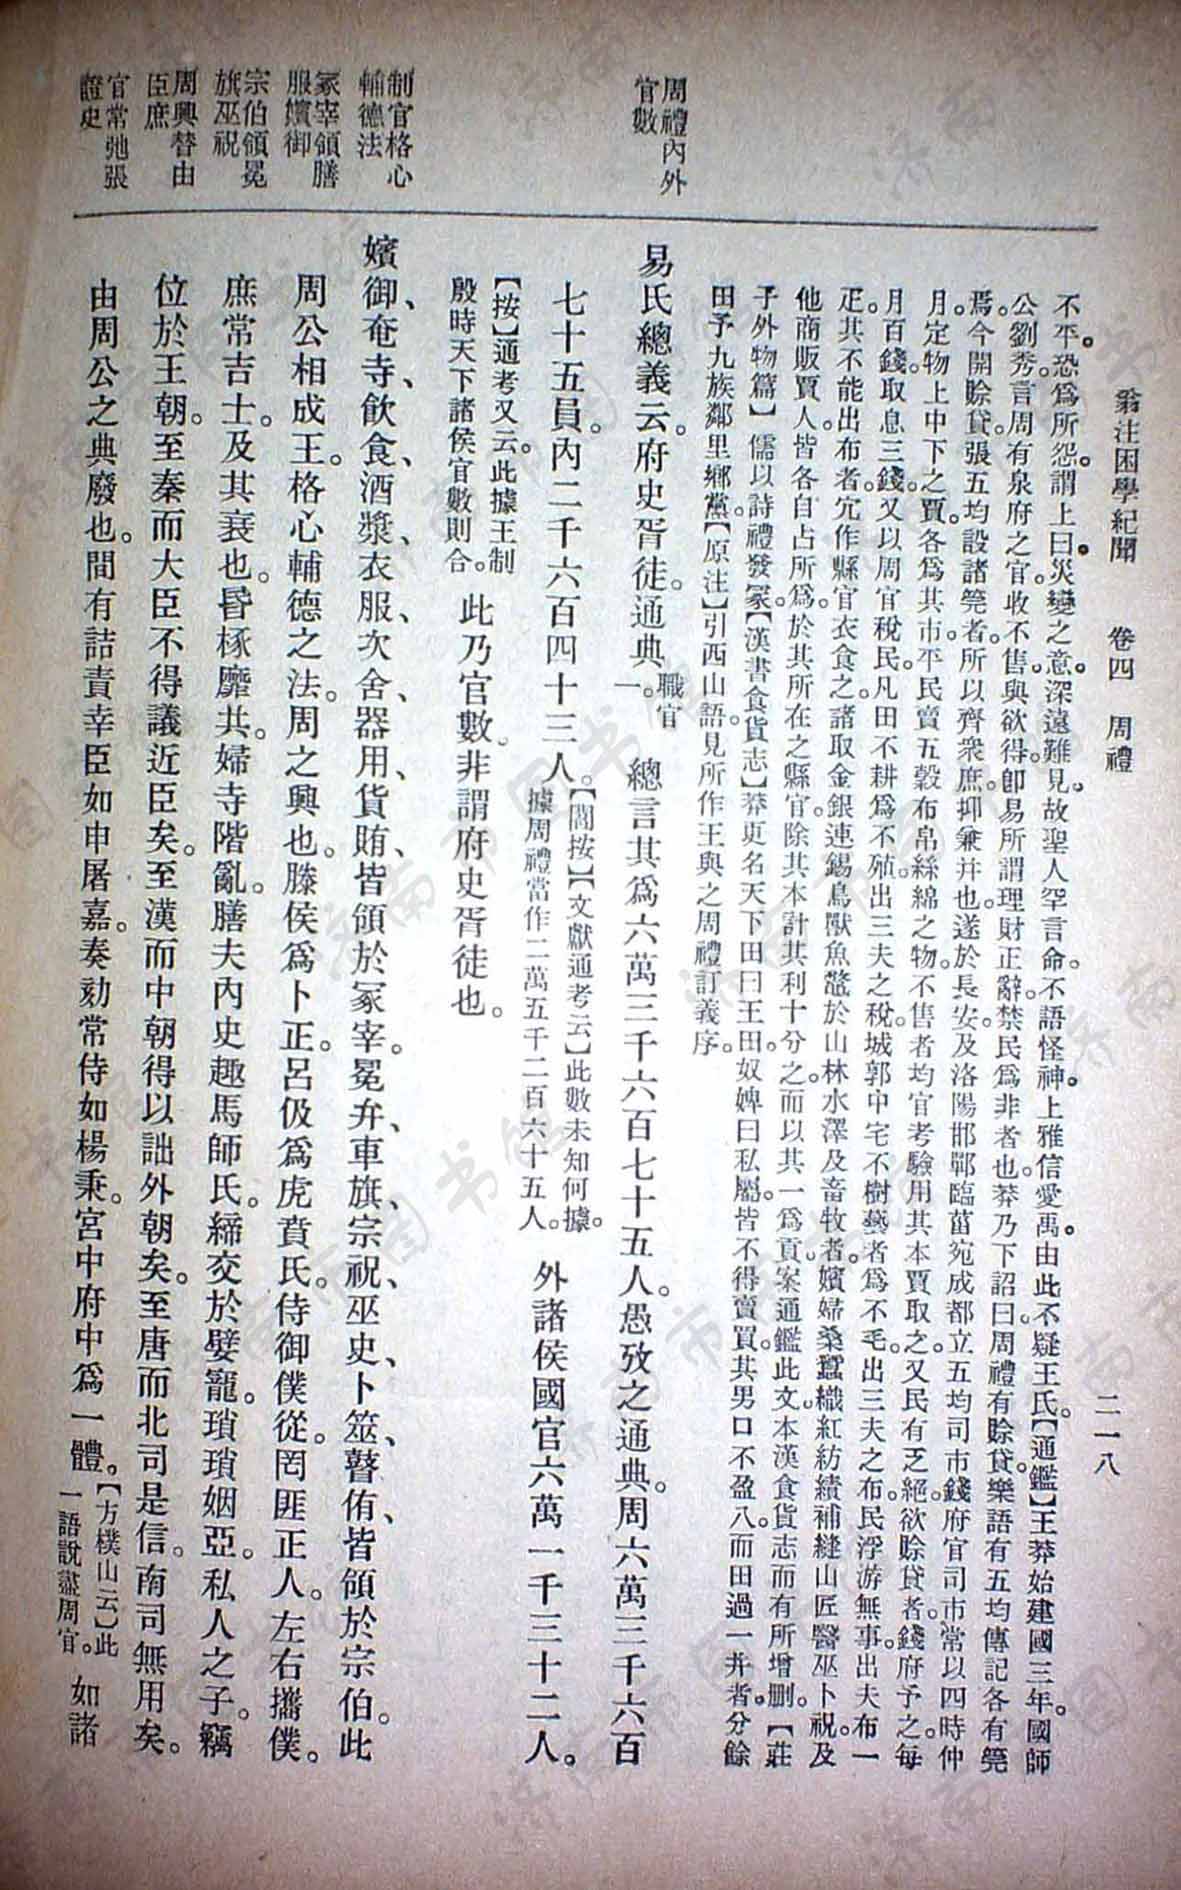 翁注困學紀聞　卷四　周禮　二一八
不平。恐爲所怨。謂上曰。災變之意。深遠難見。故聖人罕言命。不語怪神。上雅信愛禹。由此不疑王氏。【通鑑】王莽始建國三年。國師
公劉秀。言周有泉府之官。收不售。與欲得。卽易所謂理財正辭。禁民爲非者也。莽乃下詔曰。周禮有賖貸。樂語有五均。傳記各有筦
焉。今開賖貸。張五均。設諸筦者。所以齊衆庶。抑兼并也。遂於長安及洛陽邯鄲臨菑宛成都立五均司市錢府官。司市常以四時仲
月。定物上中下之賈。各爲其市平。民賣五穀布帛絲綿之物。不售者。均官考驗。用其本賈取之。又民有乏絕。欲賖貸者。錢府予之。每
月百錢。取息三錢。又以周官稅民。凡田不耕爲不殖。出三夫之稅。城郭中宅不樹藝者爲不毛。出三夫之布。民浮游無事。出夫布一
疋。其不能出布者。宂作縣官衣食之。諸取金銀連錫鳥獸魚鼈於山林水澤及畜牧者。嬪婦桑蠶織紅紡績補縫山匠醫巫卜祝及
他商販賈人。皆各自占所爲。於其所在之縣官。除其本計其利十分之。而以其一爲貢。案通鑑此文本漢食貨志而有所增删。【莊
子外物篇】儒以詩禮發冢。【漢書食貨志】莽更名天下田曰王田。奴婢曰私屬。皆不得賣買。其男口不盈八。而田過一井者。分餘
田予九族鄰里鄉黨。【原注】引西山語。見所作王與之周禮訂義序。
周禮內外
官數
易氏總義云。府史胥徒。通典職官
一。總言其爲六萬三千六百七十五人。愚攷之通典。周六萬三千六百
七十五員。內二千六百四十三人。【閻按】【文獻通考云】此數未知何據。
據周禮當作二萬五千二百六十五人。外諸侯國官六萬一千三十二人。
【按】通考又云。此據王制
殷時天下諸侯官數則合。此乃官數。非謂府史胥徒也。
制官格心
輔德法
冢宰領膳
服嬪御
宗伯領冕
旗巫祝
周興替由
臣庶
官常弛張
證史
嬪御、奄寺、飲食、酒漿、衣服、次舍、器用、貨賄、皆領於冢宰。冕弁、車旗、宗祝、巫史、卜筮、瞽侑、皆領於宗伯。此
周公相成王。格心輔德之法。周之興也。滕侯爲卜正。呂伋爲虎賁氏。侍御僕從。罔匪正人。左右攜僕。
庶常吉士。及其衰也。昏椓靡共。婦寺階亂。膳夫內史趣馬師氏。締交於嬖寵。瑣瑣姻亞。私人之子。竊
位於王朝。至秦而大臣不得議近臣矣。至漢而中朝得以詘外朝矣。至唐而北司是信。南司無用矣。
由周公之典廢也。間有詰責幸臣如申屠嘉。奏劾常侍如楊秉。宮中府中爲一體。【方樸山云】此
一語說盡周官。如諸